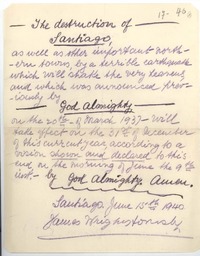 17-40
The destruction of
Santiago,
as well as other important north-
ern towns by a terrible earthquake
which will shake the very heavens
and which was announced prev-
iously by
God Almighty
on the 20th of March 1937 - will
take effect on the 31st of December
of this current year, according to a
vision shown and declared to this
end, on the morning of June the 9th
inst. - by God Almighty. Amen.
Santiago, June 15th 1940.
James